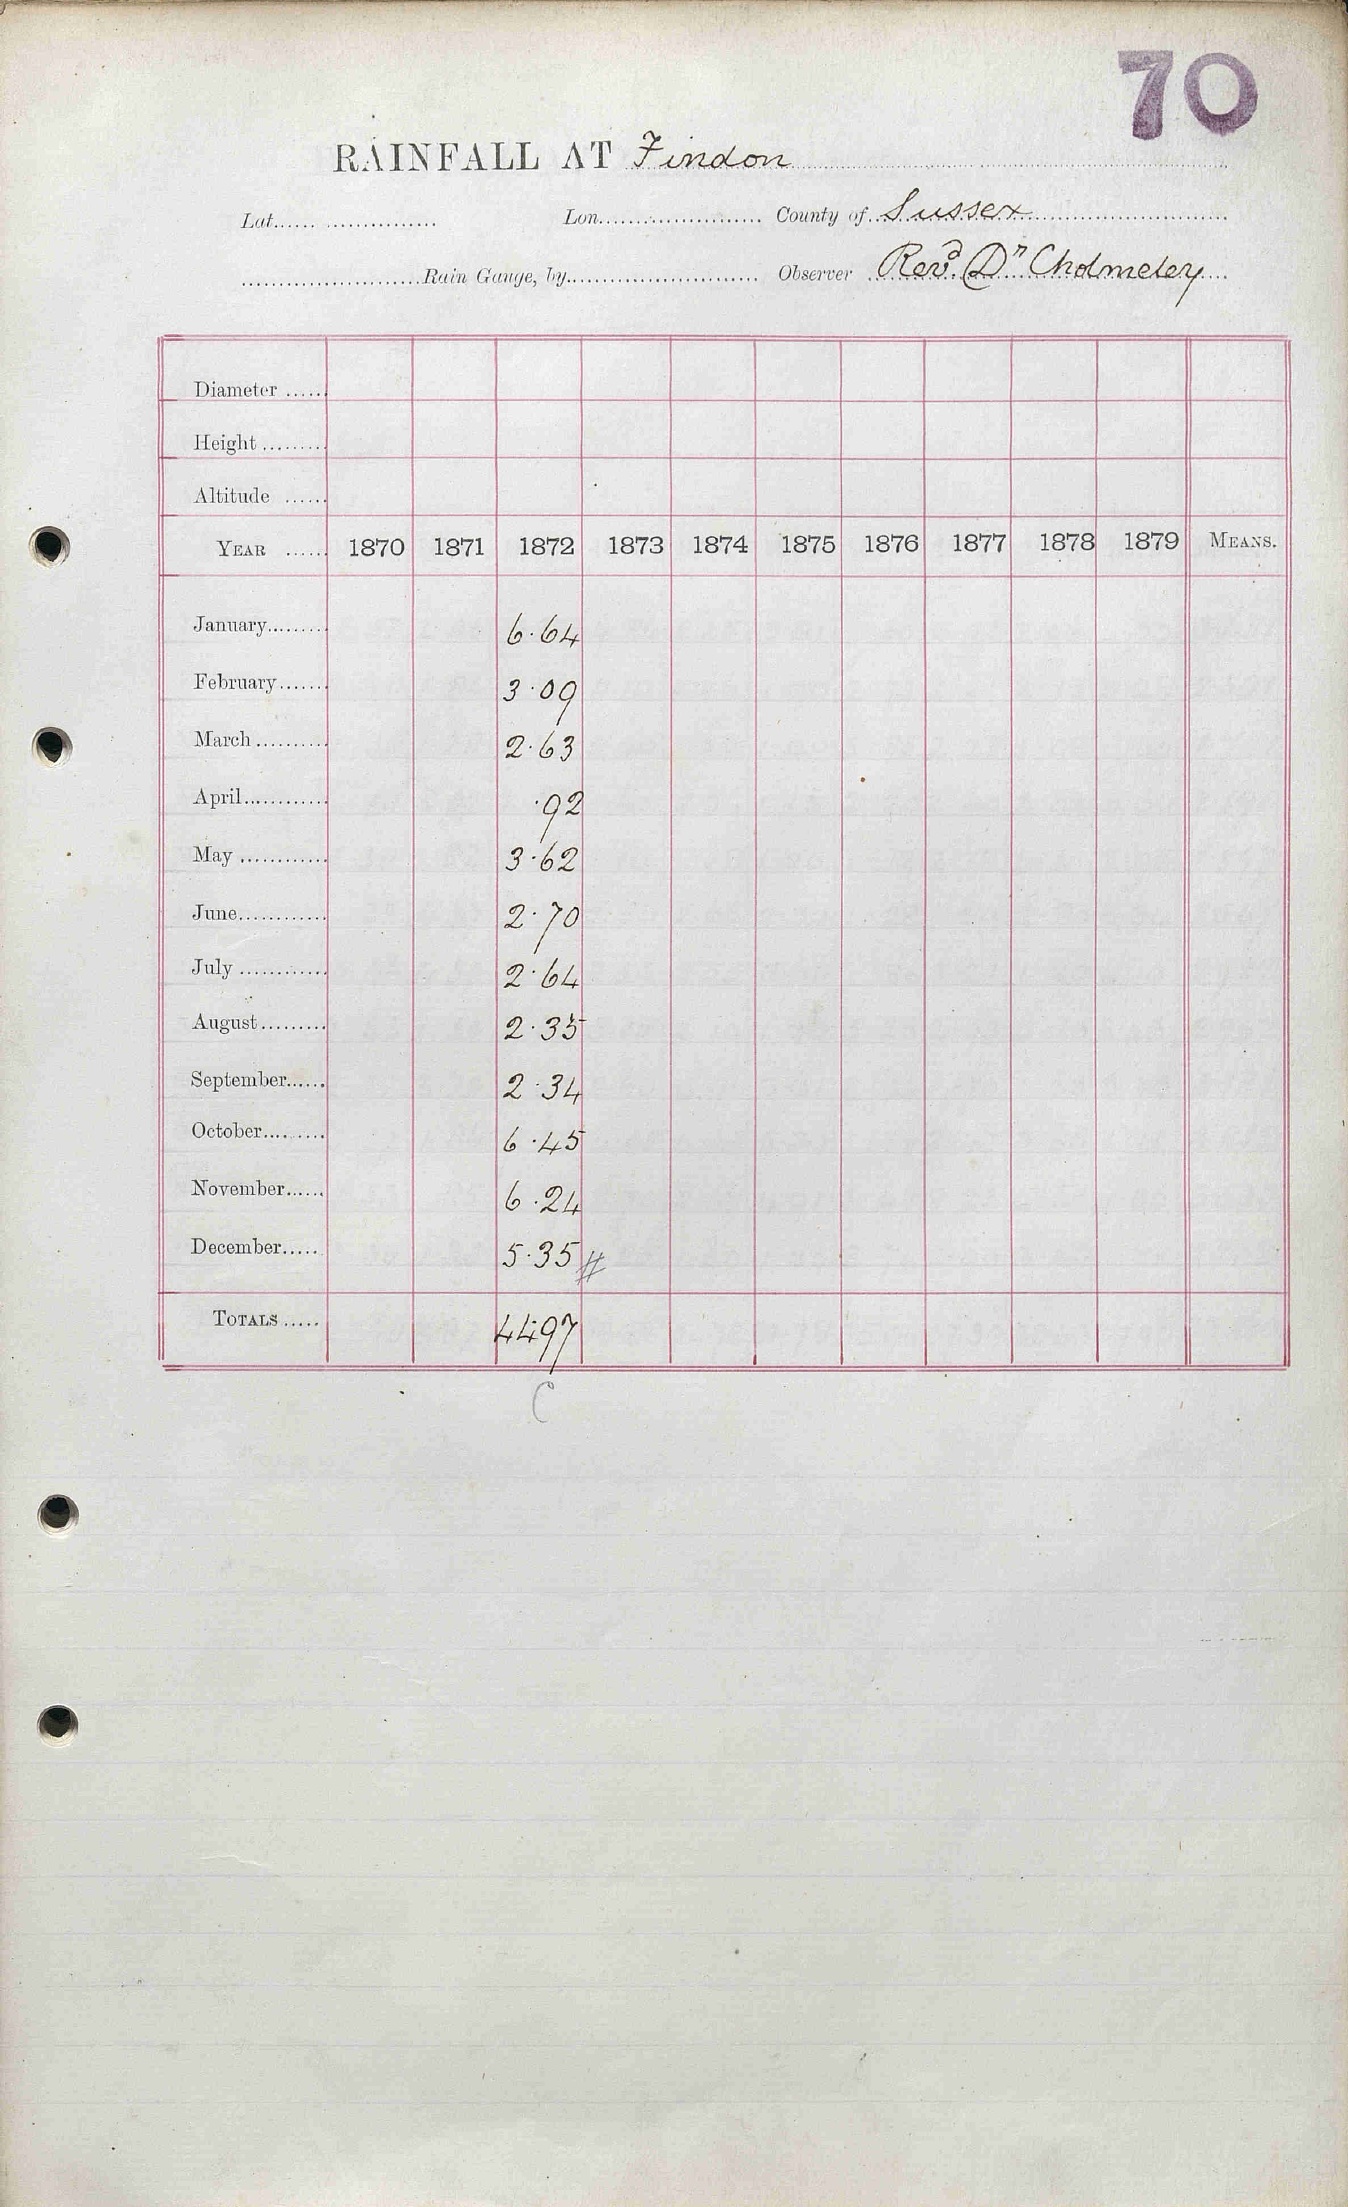 70
RAINFALL AT Findon
Lat. Lon. County of Sussex
Rain Gauge, by Observer Revd. Dr Cholmeley
Diameter
Height
Altitude
YEAR 1870 1871 1872 1873 1874 1875 1876 1877 1878 1879 MEANS.
January 6.64
February 3.09
March 2.63
April .92
May 3.62
June 2.70
July 2.64
August 2.35
September 2.34
October 6.45
November 6.24
December 5.35 #
TOTALS 44.97
C